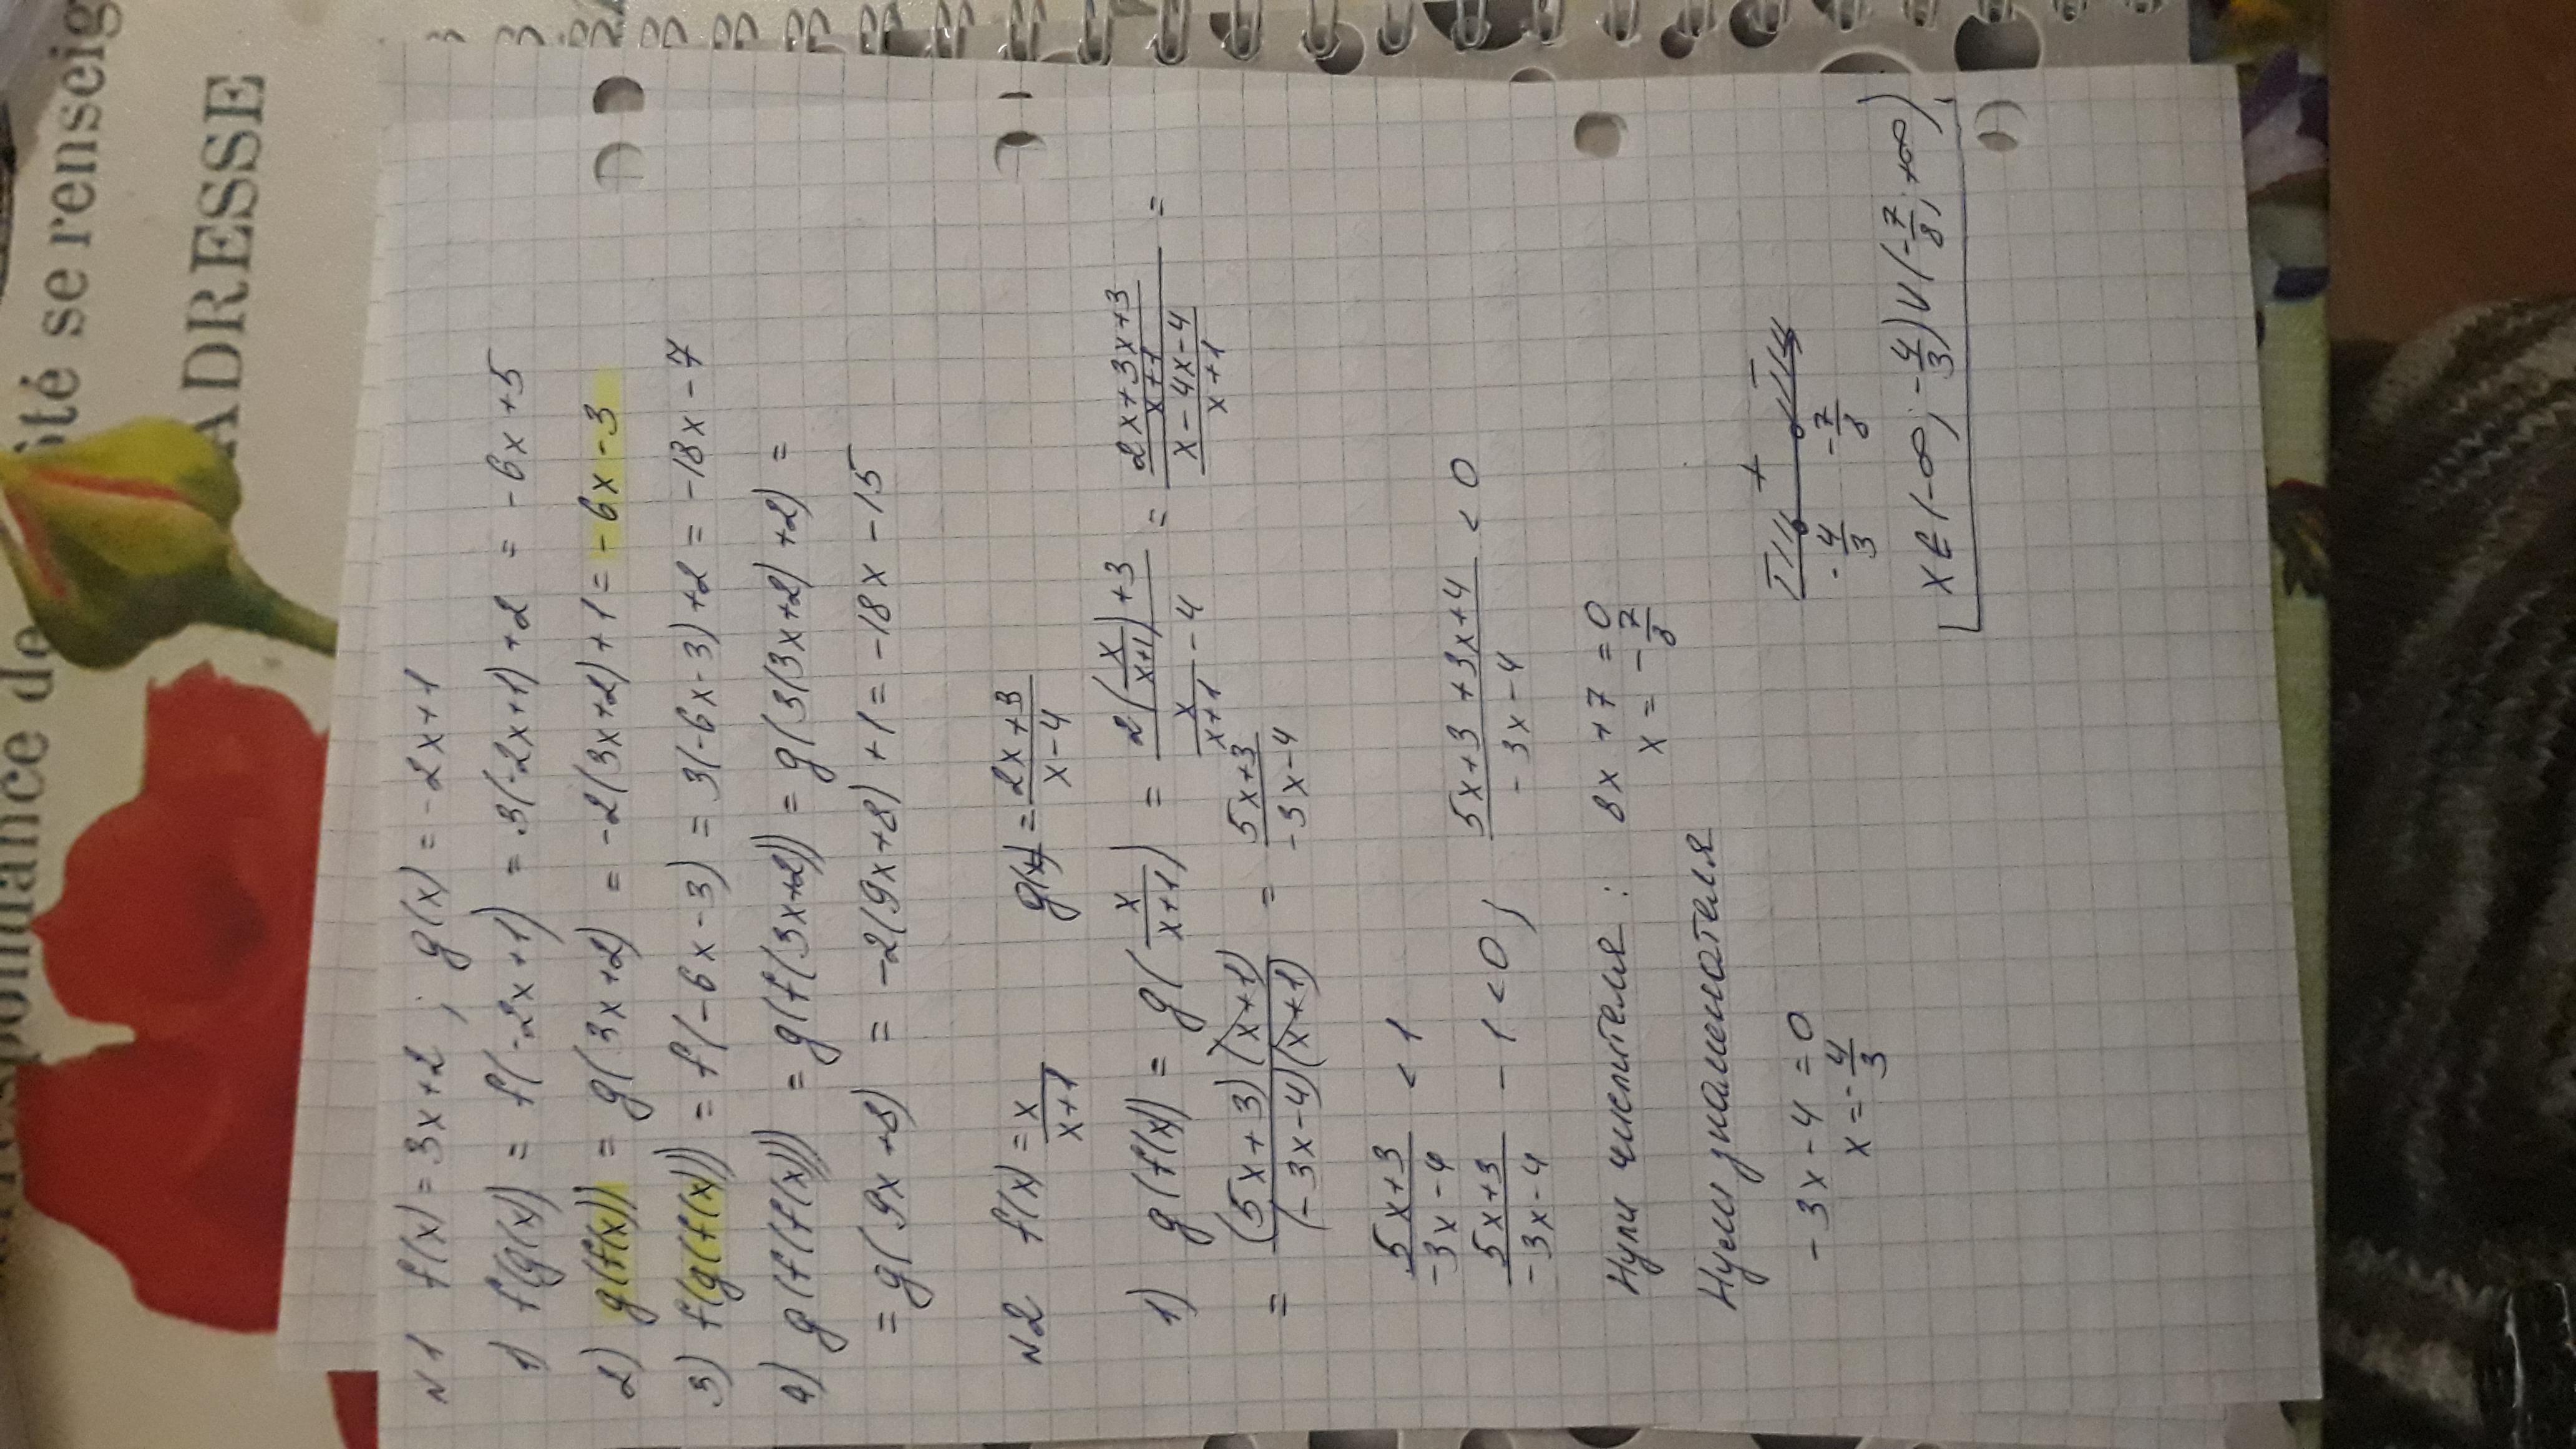 respondance de
ôté se renseig
ADRESSE
N1 f(x) = 3x+2 ; g(x) = -2x+1
1) f(g(x)) = f(-2x+1) = 3(-2x+1)+2 = -6x+5
2) g(f(x)) = g(3x+2) = -2(3x+2)+1 = -6x-3
3) f(g(f(x))) = f(-6x-3) = 3(-6x-3)+2 = -18x-7
4) g(f(f(x))) = g(f(3x+2)) = g(3(3x+2)+2) =
= g(9x+8) = -2(9x+8)+1 = -18x-15
N2 f(x) = x/(x+1) g(x) = (2x+3)/(x-4)
1) g(f(x)) = g(x/(x+1)) = (2(x/(x+1))+3)/(x/(x+1)-4) = ((2x+3x+3)/(x+1))/((x-4x-4)/(x+1)) =
= ((5x+3)(x+1))/((-3x-4)(x+1)) = (5x+3)/(-3x-4)
(5x+3)/(-3x-4) < 1
(5x+3)/(-3x-4) - 1 < 0 ; (5x+3+3x+4)/(-3x-4) < 0
Нули числителя : 8x+7=0
x = -7/8
Нули знаменателя
-3x-4=0
x = -4/3
- + -
-4/3 -7/8
x ∈ (-∞; -4/3) ∪ (-7/8; +∞)